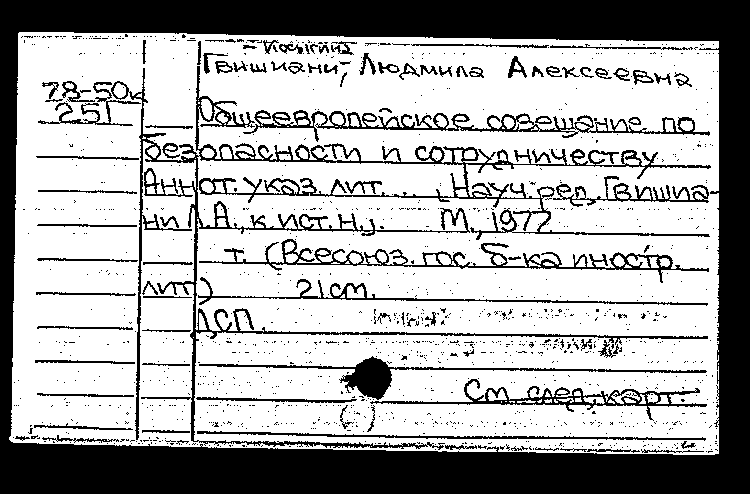 - Косыгина
Гвишиани-, Людмила Алексеевна
78-50к
251
Общеевропейское совещание по
безопасности и сотрудничеству
Аннот. указ. лит.... [Науч. ред. Гвишиа-
ни Л.А., к. ист. н.]. М., 1977
т. (Всесоюз. гос. б-ка иностр.
лит.) 21 см.
1, СП.
См. след. карт.